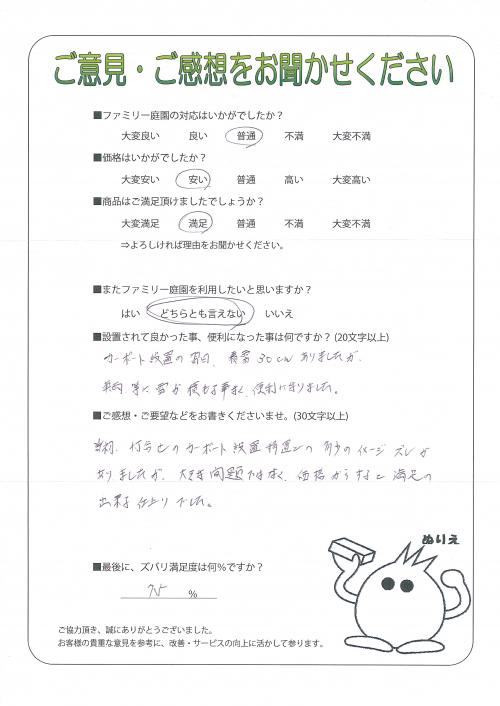 ご意見・ご感想をお聞かせください
■ファミリー庭園の対応はいかがでしたか?
大変良い 良い 普通 不満 大変不満
■価格はいかがでしたか?
大変安い 安い 普通 高い 大変高い
■商品はご満足頂けましたでしょうか?
大変満足 満足 普通 不満 大変不満
⇒よろしければ理由をお聞かせください。
■またファミリー庭園を利用したいと思いますか?
はい どちらとも言えない いいえ
■設置されて良かった事、便利になった事は何ですか? (20文字以上)
カーポート設置の翌日、積雪30cmありましたが、
車に雪が積もる事なく、便利になりました。
■ご感想・ご要望などをお書きくださいませ。(30文字以上)
当初、打合せのカーポート設置位置との多少のイメージズレが
ありましたが、大きな問題ではなく、価格からすると満足の
出来る仕上りでした。
ぬりえ
■最後に、ズバリ満足度は何%ですか?
%
ご協力頂き、誠にありがとうございました。
お客様の貴重な意見を参考に、改善・サービスの向上に活かして参ります。